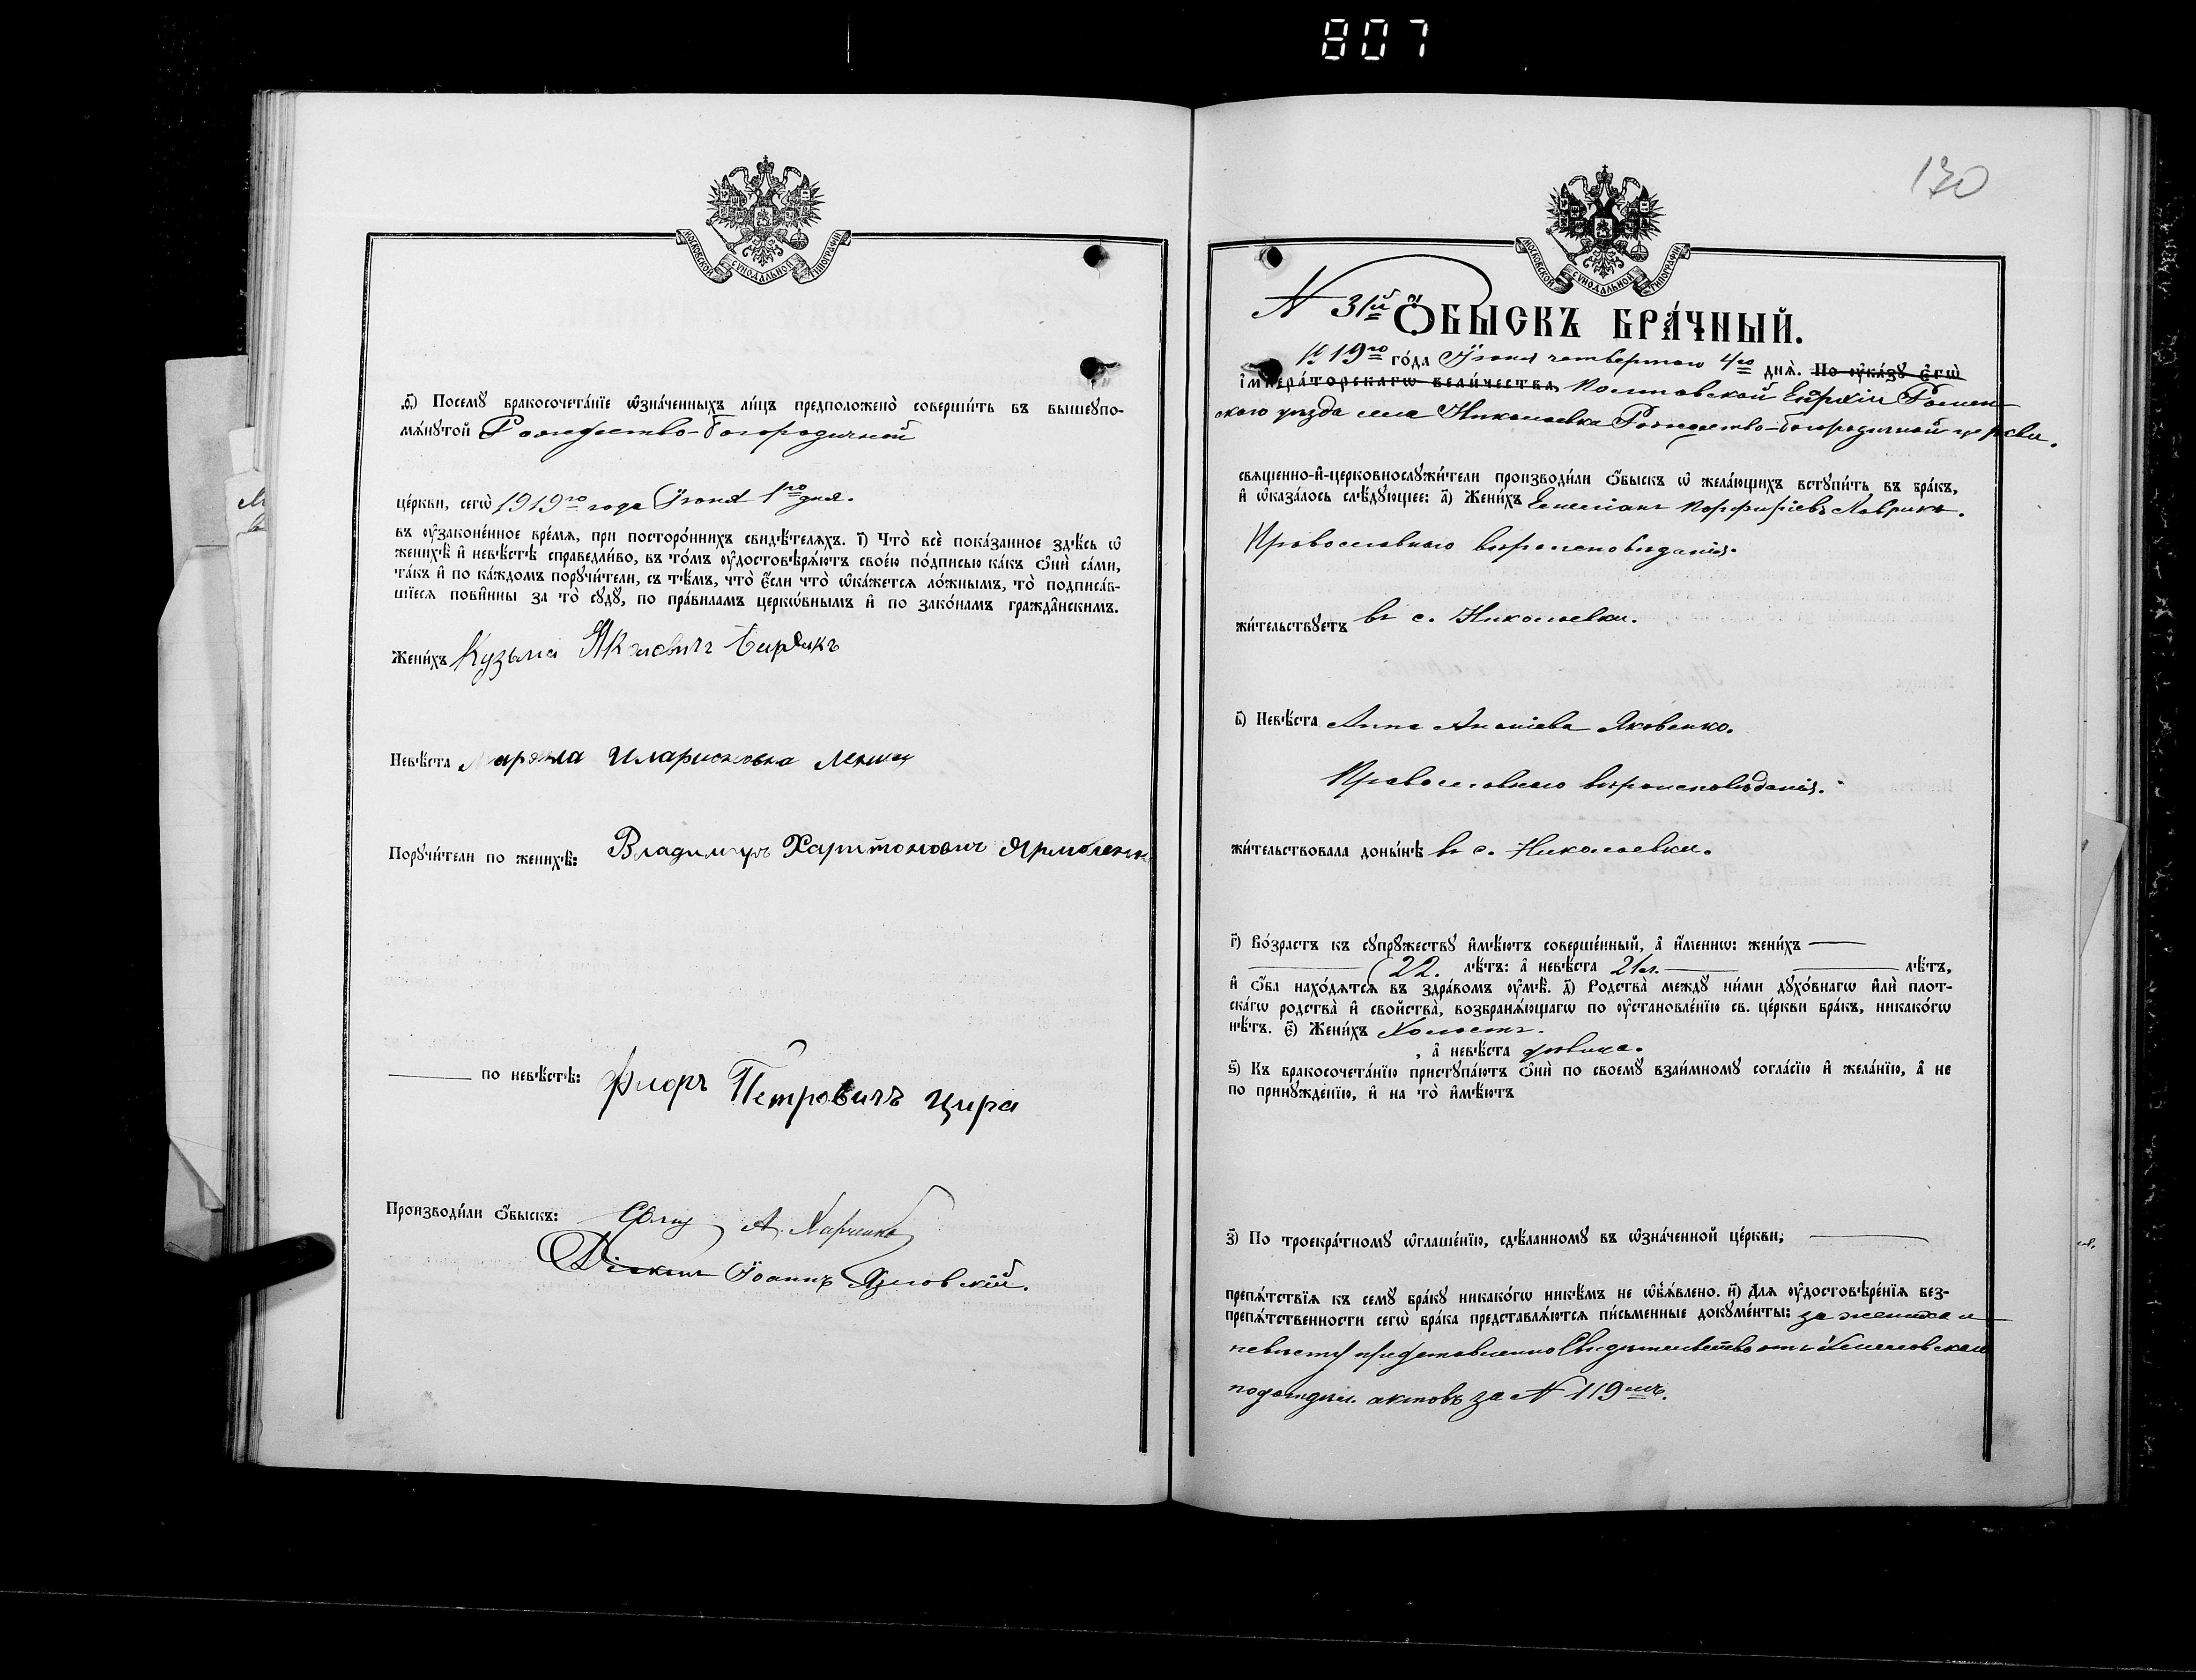 807
МОСКОВСКОЙ СѴНОДАЛЬНОЙ ТИПОГРАФІИ
ѳ҃) Посемꙋ бракосочета́нїе ѡ҆зна́ченныхъ ли́цъ предположено̀ соверши́ть въ вышеупо-
мѧ́нутой Рождество-Богородичной
це́ркви, сегѡ̀ 1919го года Іюня 1го дня.
въ ᲂу҆законе́нное вре́мѧ, при посторо́ннихъ свидѣ́телѧхъ. і҃) Что̀ всѐ пока́занное здѣ́сь ѡ҆
женихѣ̀ и҆ невѣ́стѣ справедли́во, въ то́мъ ᲂу҆достовѣрѧ́ютъ свое́ю по́дписью ка́къ ѻ҆нѝ са́ми,
та́къ и҆ по ка́ждомъ порꙋчи́тели, съ тѣ́мъ, что̀ є҆́сли что̀ ѡ҆ка́жетсѧ ло́жнымъ, то̀ подписа́в-
шїесѧ пови́нны за то̀ сꙋдꙋ̀, по пра́виламъ церкѡ́внымъ и҆ по зако́намъ гражда́нскимъ.
Жени́хъ Кузьма
Невѣ́ста Иларионовна
Порꙋчи́тели по женихѣ̀: Владимиръ Харитоновичъ Ярмоленко
по невѣ́стѣ: Флоръ Петровичъ Цира
Производи́ли ѻ҆́быскъ: А. Харченко
Діаконъ Іоаннъ
130
МОСКОВСКОЙ СѴНОДАЛЬНОЙ ТИПОГРАФІИ
N 31й Ѻ҆́БЫСКЪ БРА́ЧНЫЙ.
1919го го́да Іюня четвертаго 4го днѧ̀. По ᲂу҆ка́зꙋ є҆гѡ̀
і҆мпера́торскагѡ вели́чества, Полтавской Епархіи Ромен-
скаго уѣзда села Николаевка Рождество-Богородичной церкви.
свѧщенно-и҆-церковнослꙋжи́тели производи́ли ѻ҆́быскъ ѡ҆ жела́ющихъ встꙋпи́ть въ бра́къ,
и҆ ѡ҆каза́лось слѣ́дꙋющее: а҃) Жени́хъ Емеліанъ Порфиріевъ Лаврикъ.
Православнаго вѣроисповѣданія.
жи́тельствꙋетъ въ с. Николаевки.
в҃) Невѣ́ста Анна Ананіева Яковенко.
Православнаго вѣроисповѣданія.
жи́тельствовала доны́нѣ въ с. Николаевки.
г҃) Во́зрастъ къ сꙋпрꙋ́жествꙋ и҆мѣ́ютъ соверше́нный, а҆ и҆́меннѡ: жени́хъ
22. лѣ́тъ: а҆ невѣ́ста 21 л. лѣ́тъ,
и҆ ѻ҆́ба нахо́дѧтсѧ въ здра́вомъ ᲂу҆мѣ̀. д҃) Родства̀ междꙋ̀ ни́ми дꙋхо́внагѡ и҆лѝ плот-
ска́гѡ родства̀ и҆ сво́йства, возбранѧ́ющагѡ по ᲂу҆становле́нїю св. це́ркви бра́къ, никако́гѡ
нѣ́тъ. є҃) Жени́хъ Холостъ.
, а҆ невѣ́ста дѣвица.
ѕ҃) Къ бракосочета́нїю пристꙋпа́ютъ ѻ҆нѝ по своемꙋ̀ взаи́мномꙋ согла́сїю и҆ жела́нїю, а҆ не
по принꙋжде́нїю, и҆ на то̀ и҆мѣ́ютъ
з҃) По троекра́тномꙋ ѡ҆глаше́нїю, сдѣ́ланномꙋ въ ѡ҆зна́ченной це́ркви,
препѧ́тствїѧ къ семꙋ̀ бра́кꙋ никако́гѡ никѣ́мъ не ѡ҆б̾ѧ́влено. и҃) Для ᲂу҆достовѣре́нїѧ без-
препѧ́тственности сегѡ̀ бра́ка представлѧ́ютсѧ пи́сьменные докꙋме́нты: за жениха и
невѣсту представленно Свидѣтельство отъ
подотдѣл. актовъ за N 119мъ.